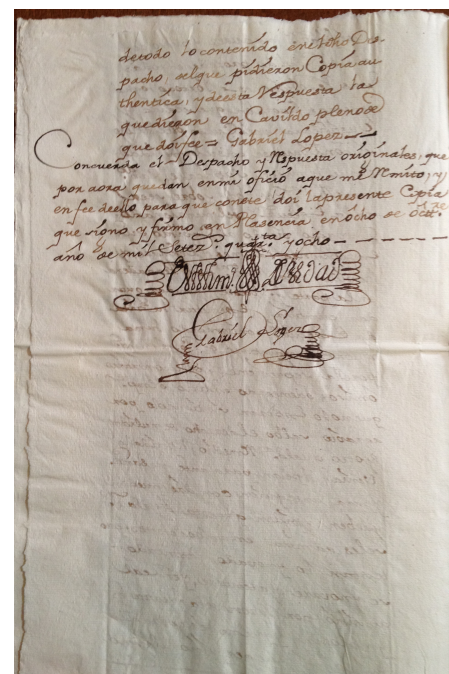 detodo lo contenido en dho Des-
pacho, del que pidieron Copia au
thentica, y de esta Respuesta la
que dieron en Cavildo pleno de
que doi fee = Gabriel Lopez
Concuerda el Despacho y Respuesta originales, que
por aora quedan en mi oficio aque me Rmito, y
en fee de ello para que conste doi la presente Copia
que signo y firmo en Plasencia en ocho de Octt.re
año de mil Setez.s quar.ta y ocho
Gabriel Lopez